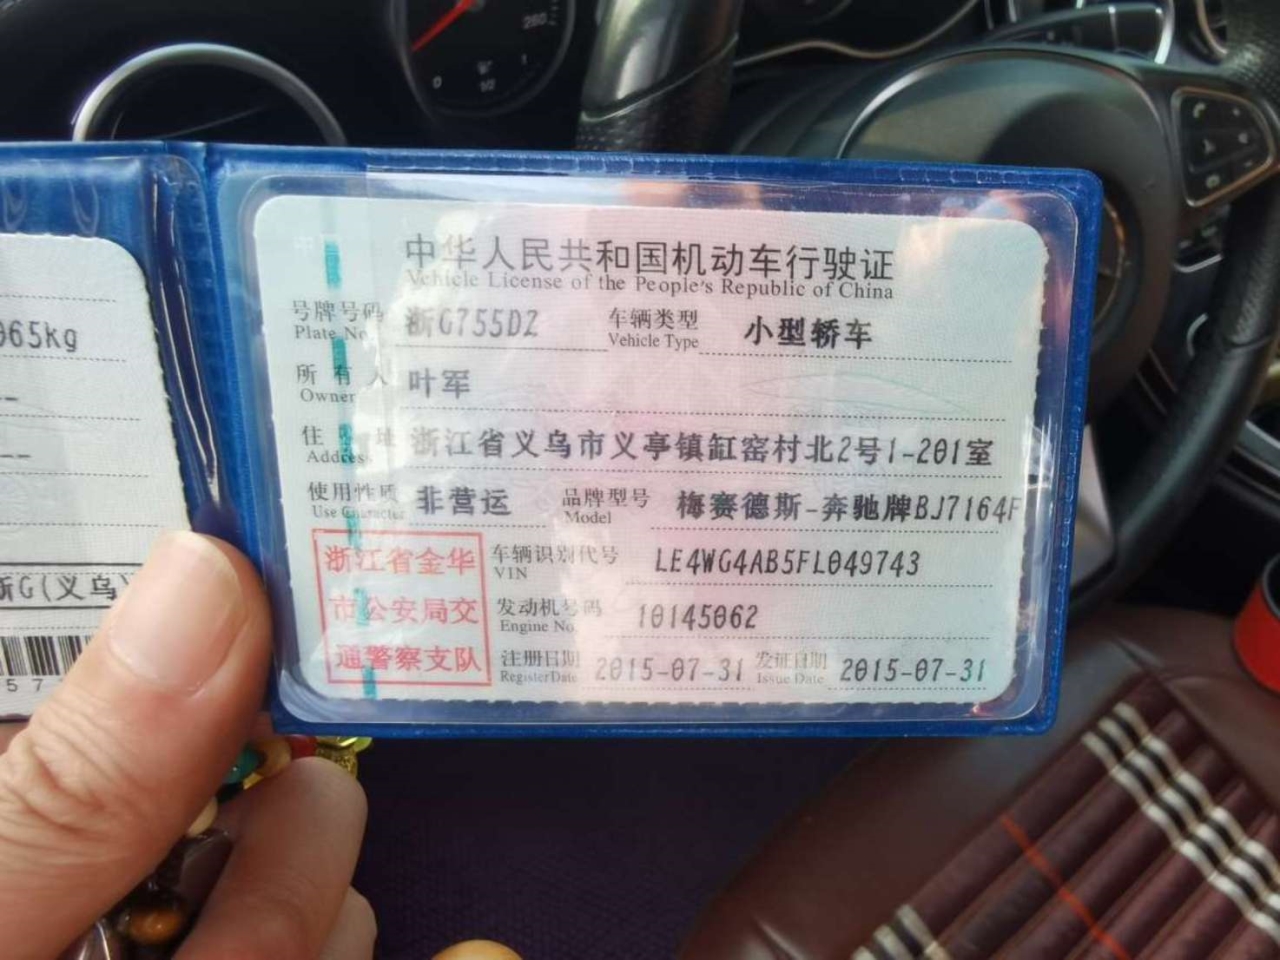 260
0
1/2
1
中华人民共和国机动车行驶证
Vehicle License of the People's Republic of China
号牌号码 浙G755DZ 车辆类型 小型轿车
Plate No. Vehicle Type
所有人 叶军
Owner
住址 浙江省义乌市义亭镇缸窑村北2号1-201室
Address
使用性质 非营运 品牌型号 梅赛德斯-奔驰牌BJ7164F
Use Character Model
浙江省金华
市公安局交
通警察支队
车辆识别代号 LE4WG4AB5FL049743
VIN
发动机号码 10145062
Engine No.
注册日期 2015-07-31 发证日期 2015-07-31
Register Date Issue Date
065kg
浙G(义乌)
5 7